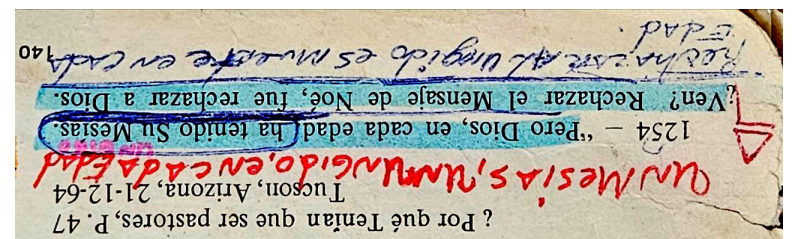 ¿ Por qué Tenían que ser pastores, P. 47
Tucson, Arizona, 21-12-64
UN MESÍAS, UN UNGIDO, EN CADA EDAD
1254 — “Pero Dios, en cada edad ha tenido Su Mesías.
¿Ven? Rechazar el Mensaje de Noé, fue rechazar a Dios.
Rechazar Al ungido es muerte en cada
Edad.
140